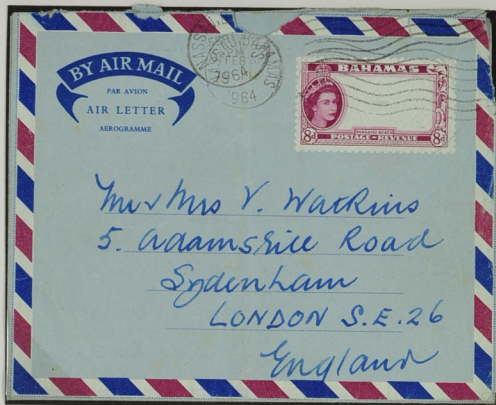 BY AIR MAIL
PAR AVION
AIR LETTER
AEROGRAMME
NASSAU BAHAMAS
FEB
1964
1964
BAHAMAS
PARADISE BEACH
8d POSTAGE-REVENUE 8d
Mr & Mrs V. Watkins
5. Adamsrill Road
Sydenham
LONDON S.E.26
England